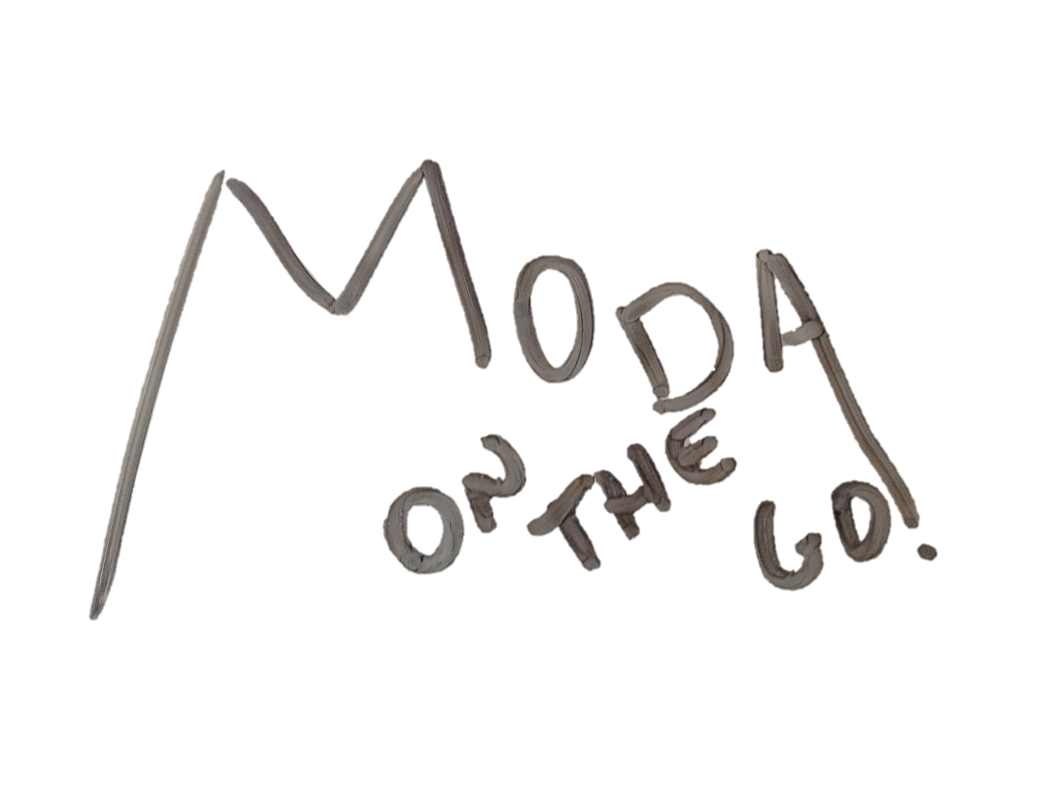 MODA
ON THE GO!